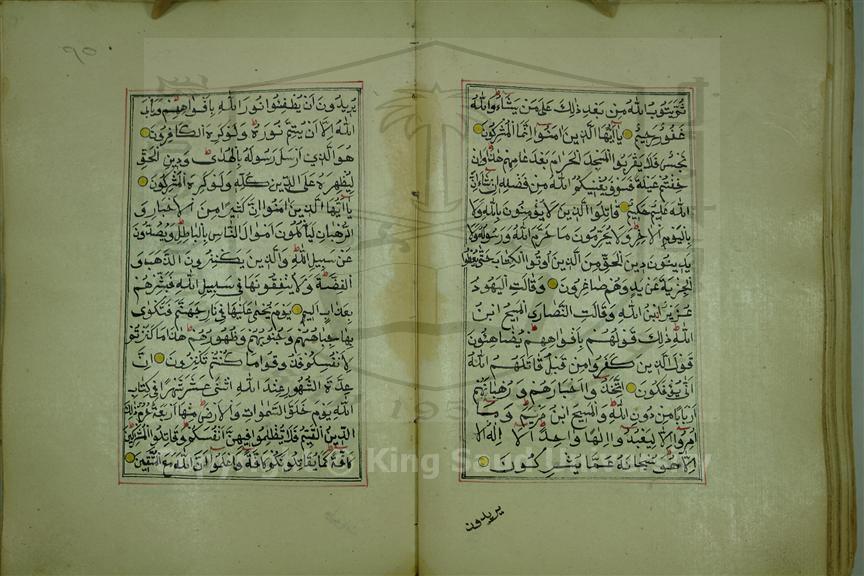 ثم يتوب الله من بعد ذلك على من يشاء والله
غفور رحيم يا أيها الذين امنوا انما المشركون
نجس فلا يقربوا المسجد الحرام بعد عامهم هذا وان
خفتم عيلة فسوف يغنيكم الله من فضله ان شاء ان
الله عليم حكيم قاتلوا الذين لا يؤمنون بالله ولا
باليوم الاخر ولا يحرمون ما حرم الله ورسوله ولا
يدينون دين الحق من الذين اوتوا الكتاب حتى يعطوا
الجزية عن يد وهم صاغرون وقالت اليهود
عزير ابن الله وقالت النصارى المسيح ابن
الله ذلك قولهم بافواههم يضاهئون
قول الذين كفروا من قبل قاتلهم الله
انى يؤفكون اتخذوا احبارهم ورهبانهم
اربابا من دون الله والمسيح ابن مريم وما
امروا الا ليعبدوا الها واحدا لا اله الا
الا هو سبحانه عما يشركون
يريدون
٩٠
يريدون ان يطفئوا نور الله بافواههم ويأبى
الله الا ان يتم نوره ولو كره الكافرون
هو الذي ارسل رسوله بالهدى ودين الحق
ليظهره على الدين كله ولو كره المشركون
يا أيها الذين امنوا ان كثيرا من الاحبار و
الرهبان ليأكلون اموال الناس بالباطل ويصدون
عن سبيل الله والذين يكنزون الذهب و
الفضة ولا ينفقونها في سبيل الله فبشرهم
بعذاب اليم يوم يحمى عليها في نار جهنم فتكوى
بها جباههم وجنوبهم وظهورهم هذا ما كنزتم
لانفسكم فذوقوا ما كنتم تكنزون ان
عدة الشهور عند الله اثنى عشر شهرا في كتاب
الله يوم خلق السموات والارض منها اربعة حرم ذلك
الدين القيم فلا تظلموا فيهن انفسكم وقاتلوا المشركين
كافة كما يقاتلونكم كافة واعلموا ان الله مع المتقين
1957
Copyright © King Saud University